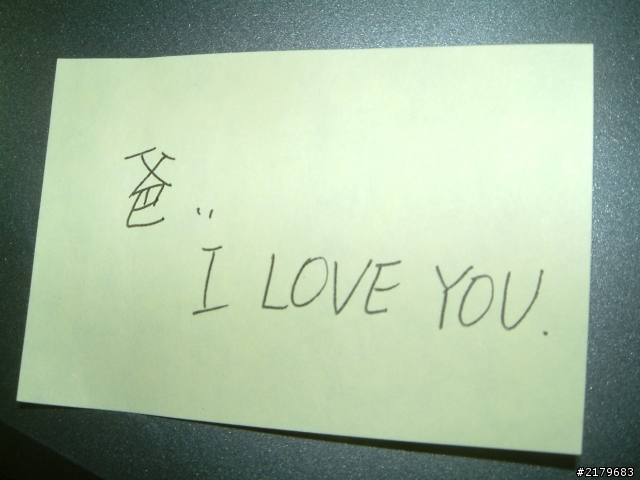 爸..
I LOVE YOU.
#2179683